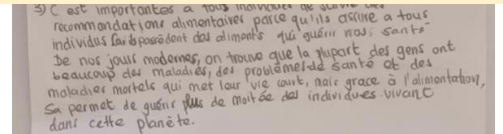 3) C'est importantes a tous individus de suivre les
recommandations alimentaires parce qu'ils assure a tous
individus possèdent des aliments qui guérir nos santé
De nos jours modernes, on trouve que la plupart des gens ont
beaucoup des maladies, des problèmes de santé et des
maladies mortels qui met leur vie court, mais grace à l'alimentation,
Sa permet de guérir plus de moitée des individues vivant
dans cette planète.